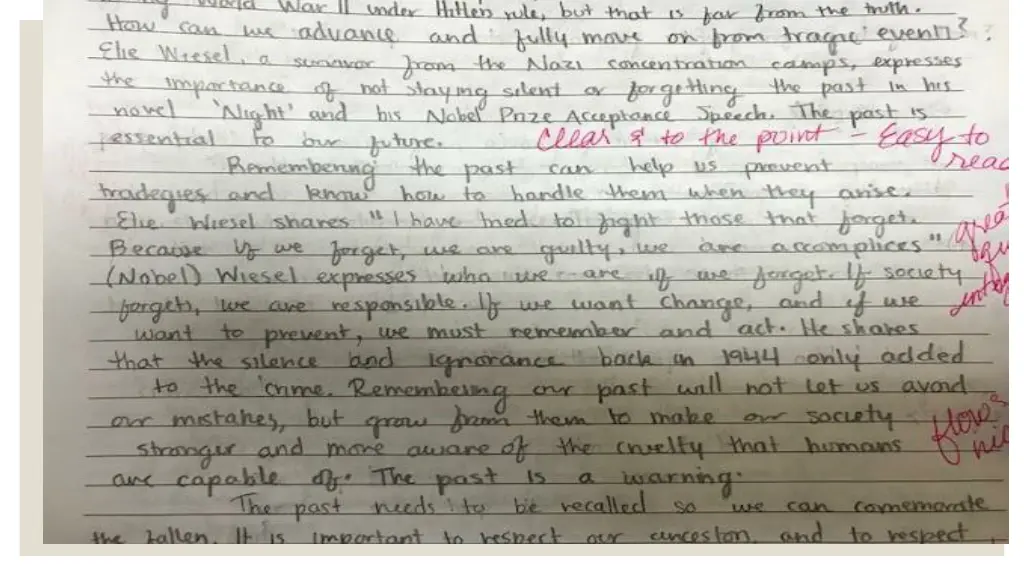 World War II under Hitlers rule, but that is far from the truth.
How can we advance and fully move on from tragic events?
Elie Wiesel, a survivor from the Nazi concentration camps, expresses
the importance of not staying silent or forgetting the past in his
novel 'Night' and his Nobel Prize Acceptance Speech. The past is
essential to our future. Clear & to the point - Easy to
read
Remembering the past can help us prevent
tradegies and know how to handle them when they arise.
Elie Wiesel shares "I have tried to fight those that forget.
Because if we forget, we are guilty, we are accomplices"
(Nobel) Wiesel expresses who we are if we forget. If society
forgets, we are responsible. If we want change, and if we
want to prevent, we must remember and act. He shares
that the silence and ignorance back in 1944 only added
to the crime. Remembering our past will not let us avoid
our mistakes, but grow from them to make our society
stronger and more aware of the cruelty that humans
are capable of. The past is a warning.
flows
The past needs to be recalled so we can comemorate
the fallen. It is important to respect our ancestors, and to respect